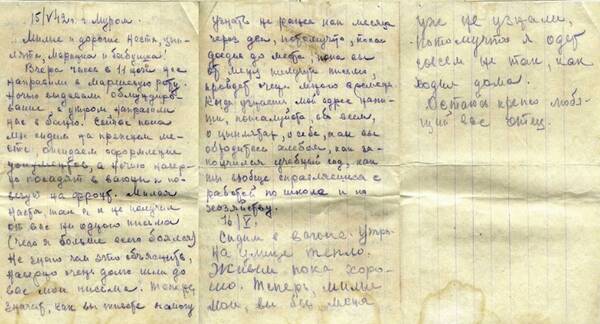 15/V 42 г. г. Муром.
Милые и дорогие Настя, цыплята, Маруська и бабушка!
Вчера часов в 11 нас
направили в маршевую роту.
Ночью выдавали обмундирование а утром направили
нас в баню. Сейчас пока
мы сидим на прежнем месте, ожидаем оформления
документов, а ночью наверно посадят в вагоны и повезут на фронт. Милая
Настя, так я и не получил
от вас ни одного письма
(чего я больше всего боялся)
Не знаю чем это объяснить,
наверно очень долго шли до
вас мои письма. Теперь,
значит, как вы живете я могу
узнать не ранее как месяца
через два, потому что, пока
доедем до места, пока вы
от меня получите письмо,
пройдет очень много времени.
Когда узнаешь мой адрес напиши, пожалуйста, обо всем,
о цыплятах, о себе, как вы
обходитесь хлебом, как закончился учебный год, как
ты вообще справляешься с
работой по школе и по
хозяйству.
16/V.
Сидим в вагонах. Утро.
На улице тепло.
Живем пока хорошо. Теперь, милые
мои, вы бы меня
уже не узнали,
потому что я одет
совсем не так, как
ходил дома.
Остаюсь крепко любящий вас отец.